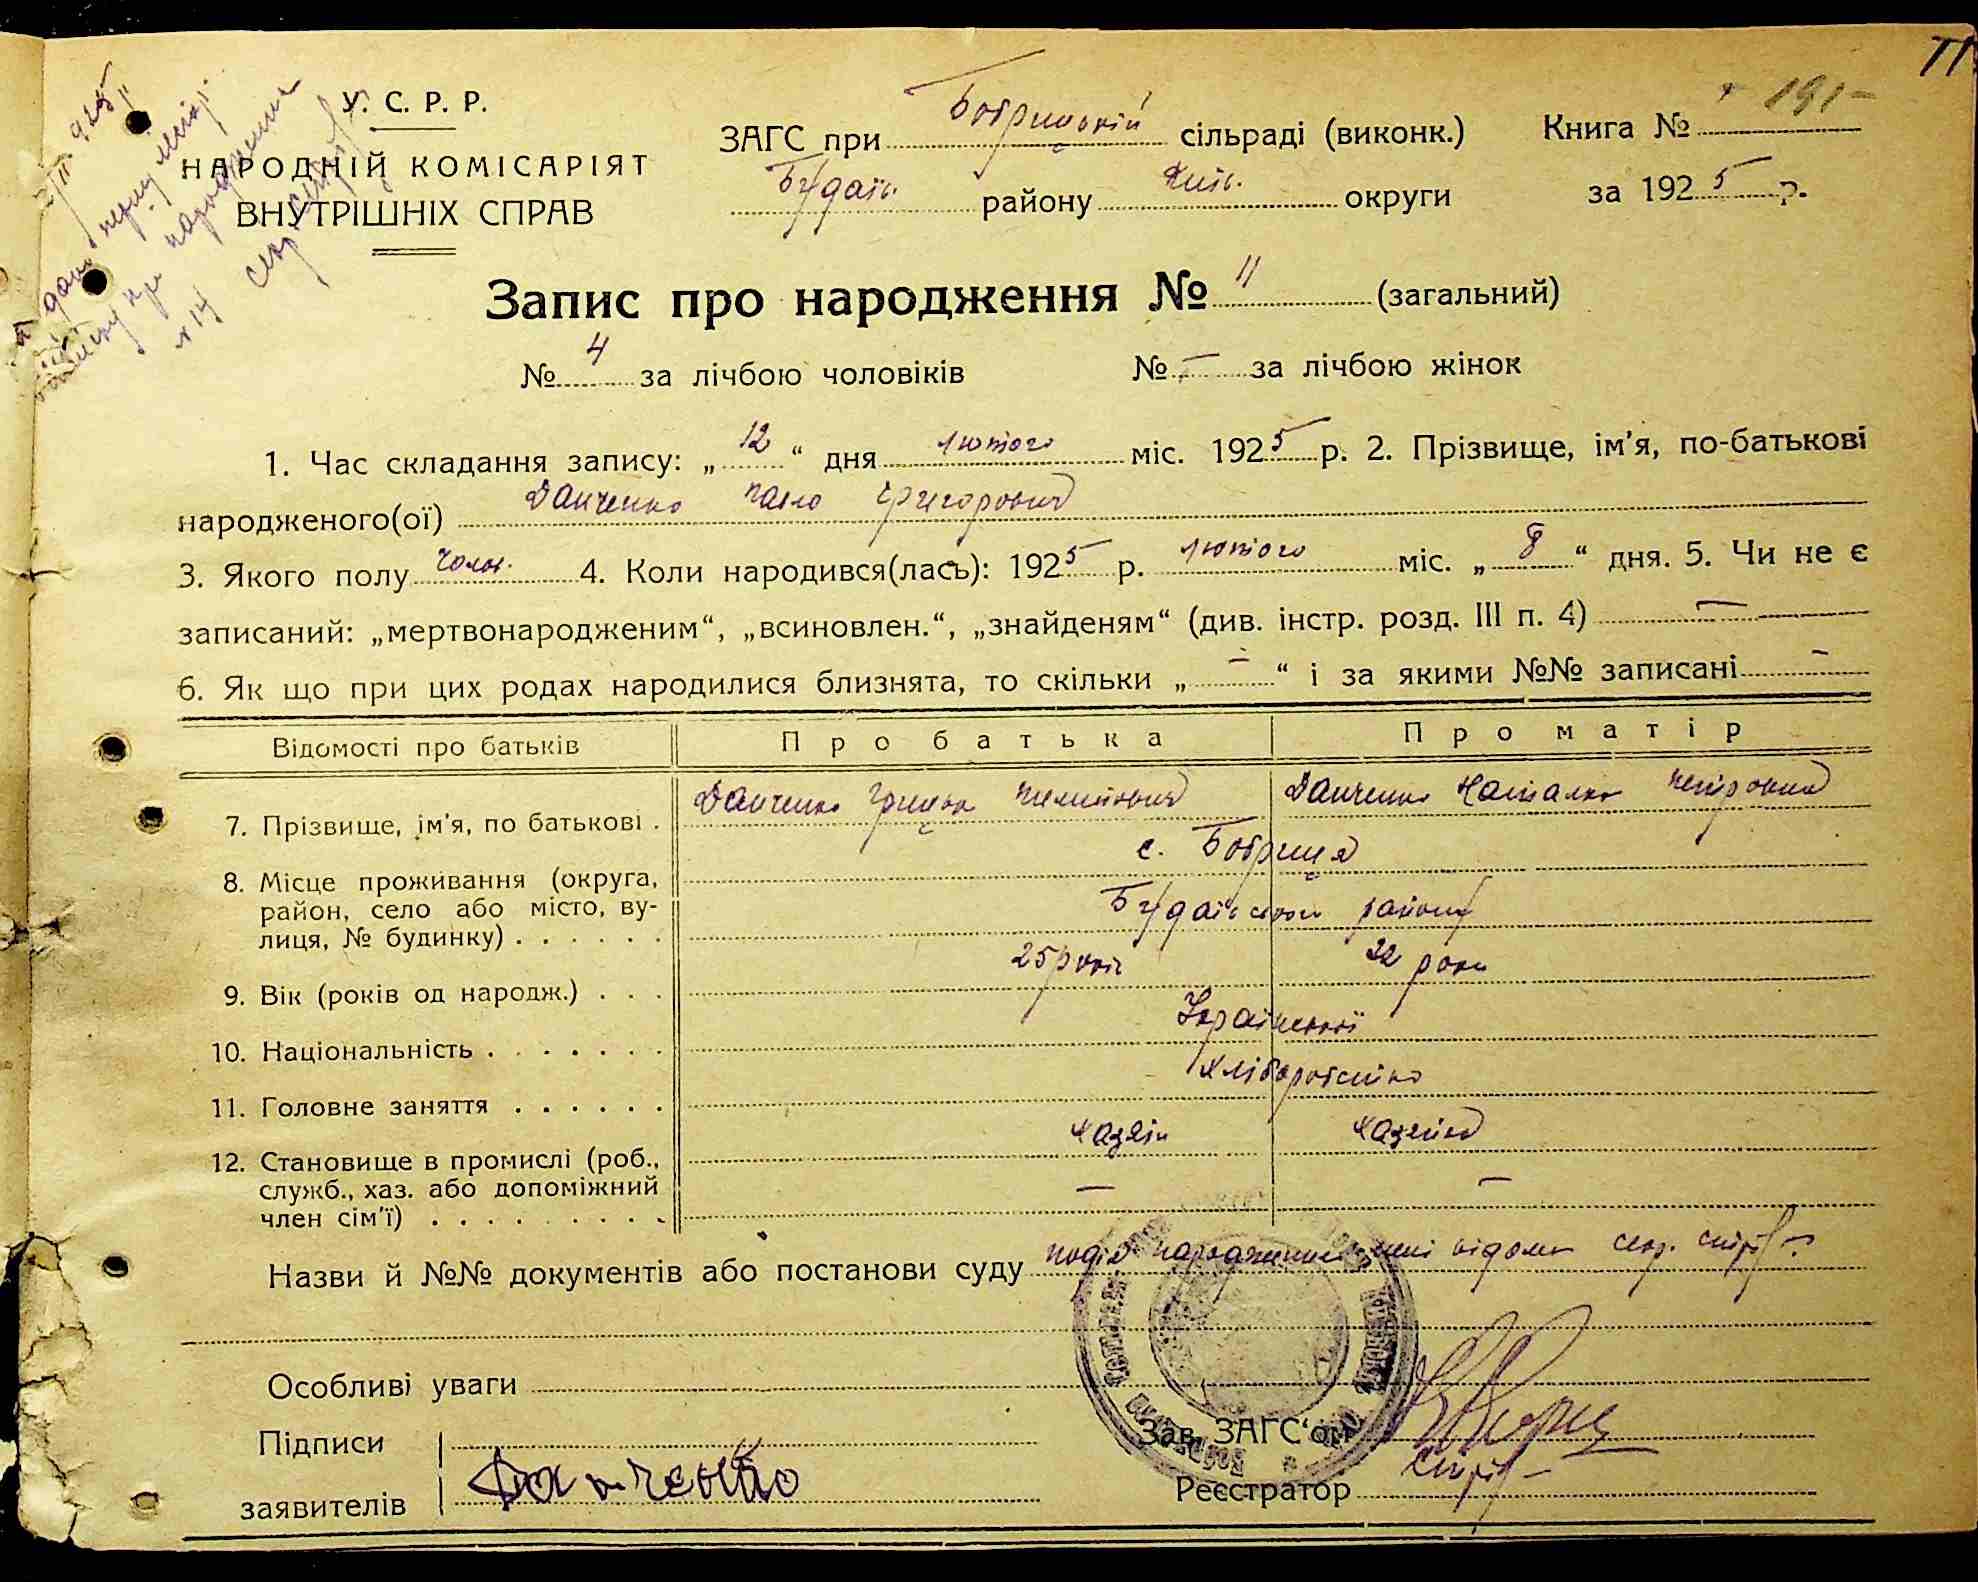 11
У. С. Р. Р.
НАРОДНІЙ КОМІСАРІЯТ
ВНУТРІШНІХ СПРАВ
ЗАГС при Бобрицькій сільраді (виконк.)
Будаїв. району Київ. округи
Книга № 191
за 1925 р.
Запис про народження № 11 (загальний)
№ 4 за лічбою чоловіків № — за лічбою жінок
1. Час складання запису: „12“ дня лютого міс. 1925 р. 2. Прізвище, ім'я, по-батькові
народженого(ої) Данченко Павло Григорович
3. Якого полу чолов. 4. Коли народився(лась): 1925 р. лютого міс. „8“ дня. 5. Чи не є
записаний: „мертвонародженим“, „всиновлен.“, „знайденям“ (див. інстр. розд. III п. 4) —
6. Як що при цих родах народилися близнята, то скільки „—“ і за якими №№ записані —
Відомості про батьків Про батька Про матір
7. Прізвище, ім'я, по батькові . Данченко Грицько Пилипович Данченко Наталка Петровна
с. Бобриця
8. Місце проживання (округа,
район, село або місто, ву-
лиця, № будинку) . . . . . .
Будаївського району
9. Вік (років од народж.) . . . 25 років 22 роки
10. Національність . . . . . . . Української
11. Головне заняття . . . . . . Хліборобство
12. Становище в промислі (роб.,
служб., хаз. або допоміжний
член сім'ї) . . . . . . . . .
Хазяїн Хазяйка
— —
Назви й №№ документів або постанови суду подія народження мені відома секр.
Особливі уваги
Підписи
заявителів
Данченко
Зав. ЗАГС‘ом
Реєстратор